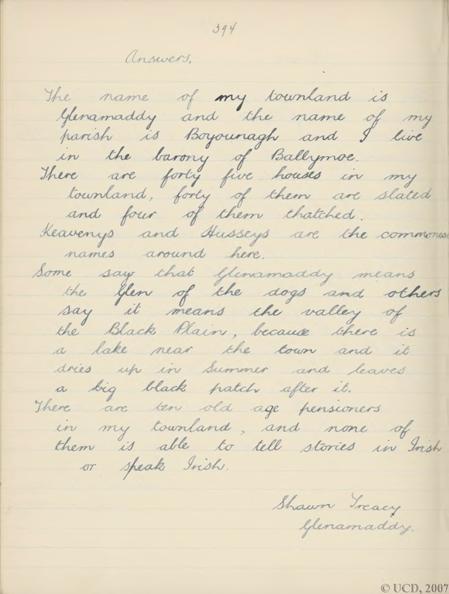 394
Answers.
The name of my townland is
Glenamaddy and the name of my
parish is Boyounagh and I live
in the barony of Ballymoe.
There are forty five houses in my
townland, forty of them are slated
and four of them thatched.
Heavenys and Husseys are the commonest
names around here.
Some say that Glenamaddy means
the Glen of the dogs and others
say it means the valley of
the Black Plain, because there is
a lake near the town and it
dries up in Summer and leaves
a big black patch after it.
There are ten old age pensioners
in my townland, and none of
them is able to tell stories in Irish
or speak Irish.
Shawn Treacy
Glenamaddy.
© UCD, 2007